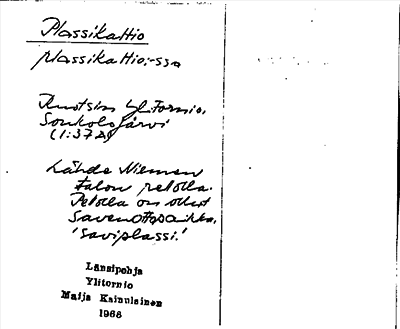 Plassikaltio
plassikaltio:-ssa
Ruotsin Ylitornio,
Soukolojärvi
(1:37 A)
Lähde Niemen
talon pellolla.
Pellolla on ollut
savenottopaikka,
'saviplassi.'
Länsipohja
Ylitornio
Maija Kainulainen
1968